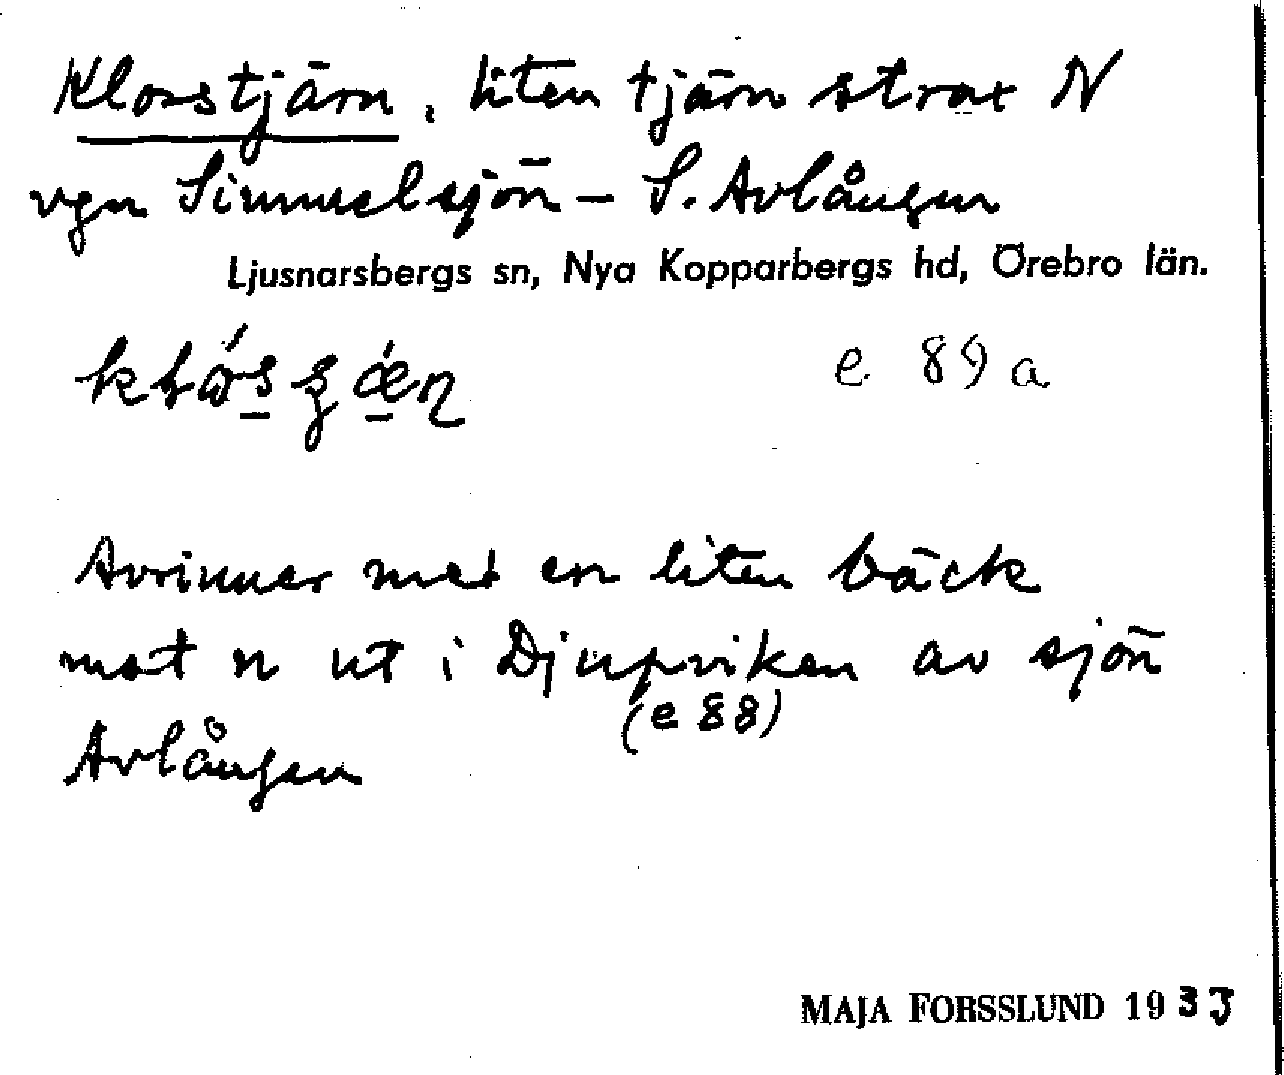 Klosstjärn, liten tjärn strax N
vgn Simmelsjön – S. Avlången
Ljusnarsbergs sn, Nya Kopparbergs hd, Örebro län.
e 89a
Avrinner med en liten bäck
mot n ut i Djupviken av sjön
(e 88)
Avlången
MAJA FORSSLUND 1935